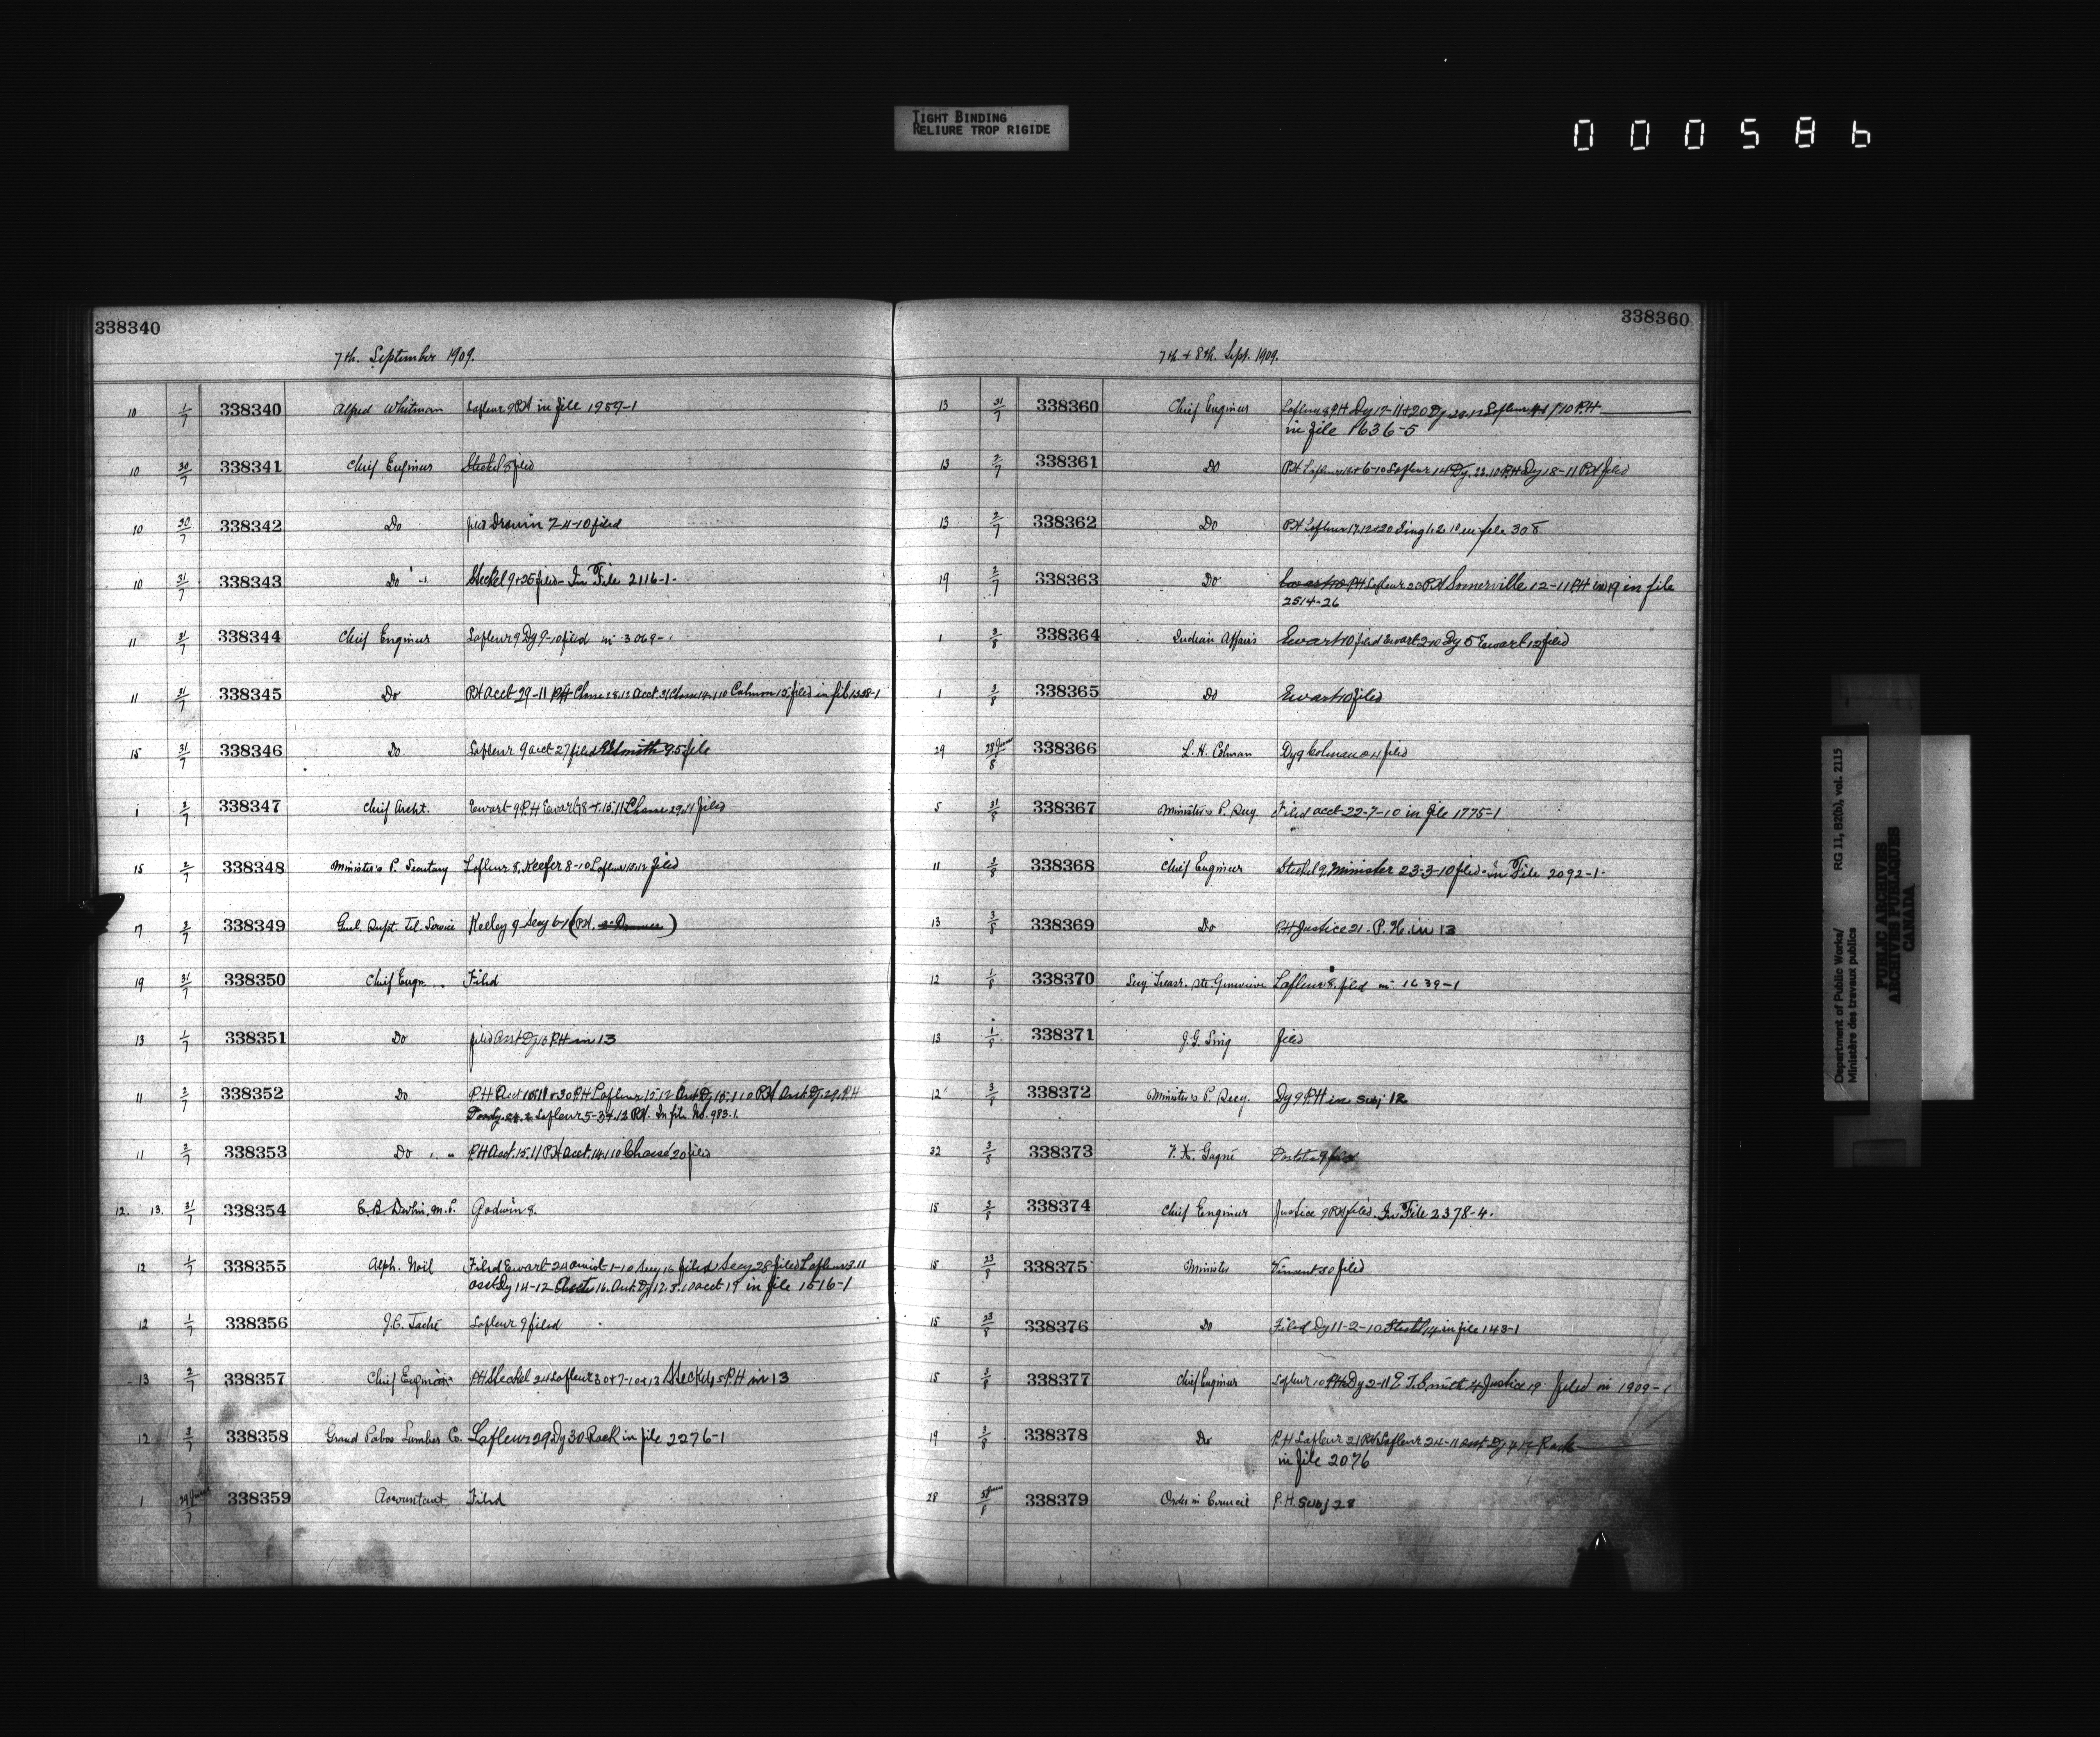 TIGHT BINDING
RELIURE TROP RIGIDE
000586
338340
7th. September 1909.
10 1/7 338340 Alfred Whitman Lafleur 9 P.H in file 1959-1
10 30/7 338341 Chief Engineer Steckel 8 filed
10 30/7 338342 Do filed Drouin 7-4-10 filed
10 31/7 338343 Do Steckel 9+25 filed - In File 2116-1-
11 31/7 338344 Chief Engineer Lafleur 9 Dy 9-10 filed in 3069-
11 31/7 338345 Do P.H Acct 29-11 P.H Chasse 28.12 acct 31 Chasse 14-1-10 15 filed in file 1358-1
15 31/7 338346 Do. Lafleur 9 acct 27 filed file
1 2/7 338347 Chief Archt. Ewart 9 P.H Ewart 15.11 Chasse 29.11 filed
15 2/7 338348 Minister's P. Secretary Lafleur 8. Keefer 8-10 Lafleur filed
7 2/7 338349 Genl. Supt. Tel. Service Keeley 9 Secy (P.H. )
19 31/7 338350 Chief Engr. Filed
13 1/7 338351 Do filed Asst Dy 10 P.H in 13
11 2/7 338352 Do P.H Acct +30 P.H Lafleur 15.12 Asst Dy 15.1.10 P.H Asst Dy. 29. P.H
Lafleur 5-3+.12 P.H. In file No. 983.1.
11 2/7 338353 Do P.H Acct. 15.11 P.H acct. 14.1.10 Chassé 20 filed
12. 13. 31/7 338354 E.B. Devlin, M.P. Godwin 8.
12 1/7 338355 Alph. Noël Filed Ewart 24 1-10 Secy 16 filed Secy 28 filed Lafleur 3.11
asst Dy 14-12 16. Asst. Dy 17.3.10 acct 19 in file 1516-1
12 1/7 338356 J.C. Taché Lafleur 9 filed
13 2/7 338357 Chief Engineer P.H Steckel 24 Lafleur 30+7-10+12 Steckel 15 P.H in 13
12 3/7 338358 Grand Pabos Lumber Co. Lafleur 29 Dy 30 Rack in file 2276-1
1 338359 Accountant Filed
338360
7th. + 8th. Sept. 1909.
13 31/7 338360 Chief Engineer Lafleur 8 P.H Dy 17-11+20 Dy Lafleur P.H
in file 1636-5
13 2/7 338361 Do P.H Lafleur +6-10 Lafleur 14 Dy. 22.10 P.H Dy 18-11 P.H filed
13 2/7 338362 Do P.H Lafleur 17.12+20 Sing in file 308
19 2/7 338363 Do P.H Lafleur 23 P.H Somerville 12-11 P.H in 19 in file
2514-26
1 3/8 338364 Indian Affairs Ewart 10 filed Ewart 2-10 Dy 5 Ewart 12 filed
1 3/8 338365 Do Ewart 10 filed
29 338366 L.H. Colman Dy 9 Colman filed
5 31/8 338367 Minister's P. Secy Filed acct 22-7-10 in file 1775-1
11 3/8 338368 Chief Engineer Steckel 9. Minister 23-3-10 filed - In File 2092-1-
13 3/8 338369 Do P.H Justice 21 - P.H. in 13
12 1/8 338370 Secy Treasr. Ste. Genevieve Lafleur 8. filed in 1639-1
13 1/8 338371 J.G. Sing filed
12 3/8 338372 Minister's P. Secy. Dy 9 P.H in subj 12
32 3/8 338373 F.X. Gagné
15 3/8 338374 Chief Engineer Justice 9 P.H filed. In File 2378-4.
15 23/8 338375 Minister Vincent 30 filed
15 23/8 338376 Do Filed Dy 11-2-10 Steckel 14 in file 143-1
15 3/8 338377 Chief Engineer Lafleur 10 P.H Dy 2-11 E.T. Smith 4 Justice 19 filed in 1909-1
19 3/8 338378 Do P.H Lafleur 21 P.H Lafleur 24-11 asst Dy Rack
in file 2076
28 338379 Order in Council P.H. Subj 28
Department of Public Works/
Ministère des travaux publics
RG 11, B2(b), vol. 2115
PUBLIC ARCHIVES
ARCHIVES PUBLIQUES
CANADA